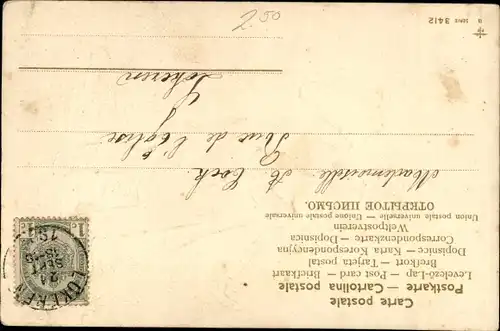 Carte postale
Postkarte — Cartolina postale
Levelező-Lap — Post card — Briefkaart
Breitkort — Tarjeta postal
Dopisnice — Karta Korespondencyjna
Correspondenzkarte — Dopisnica
Weltpostverein
Union postale universelle — Unione postale universale
ОТКРЫТОЕ ПИСЬМО.
Mademoiselle A. Cock
Rue de l'Église
Lokeren
2.50
3412
1
LOKEREN
24
SEPT